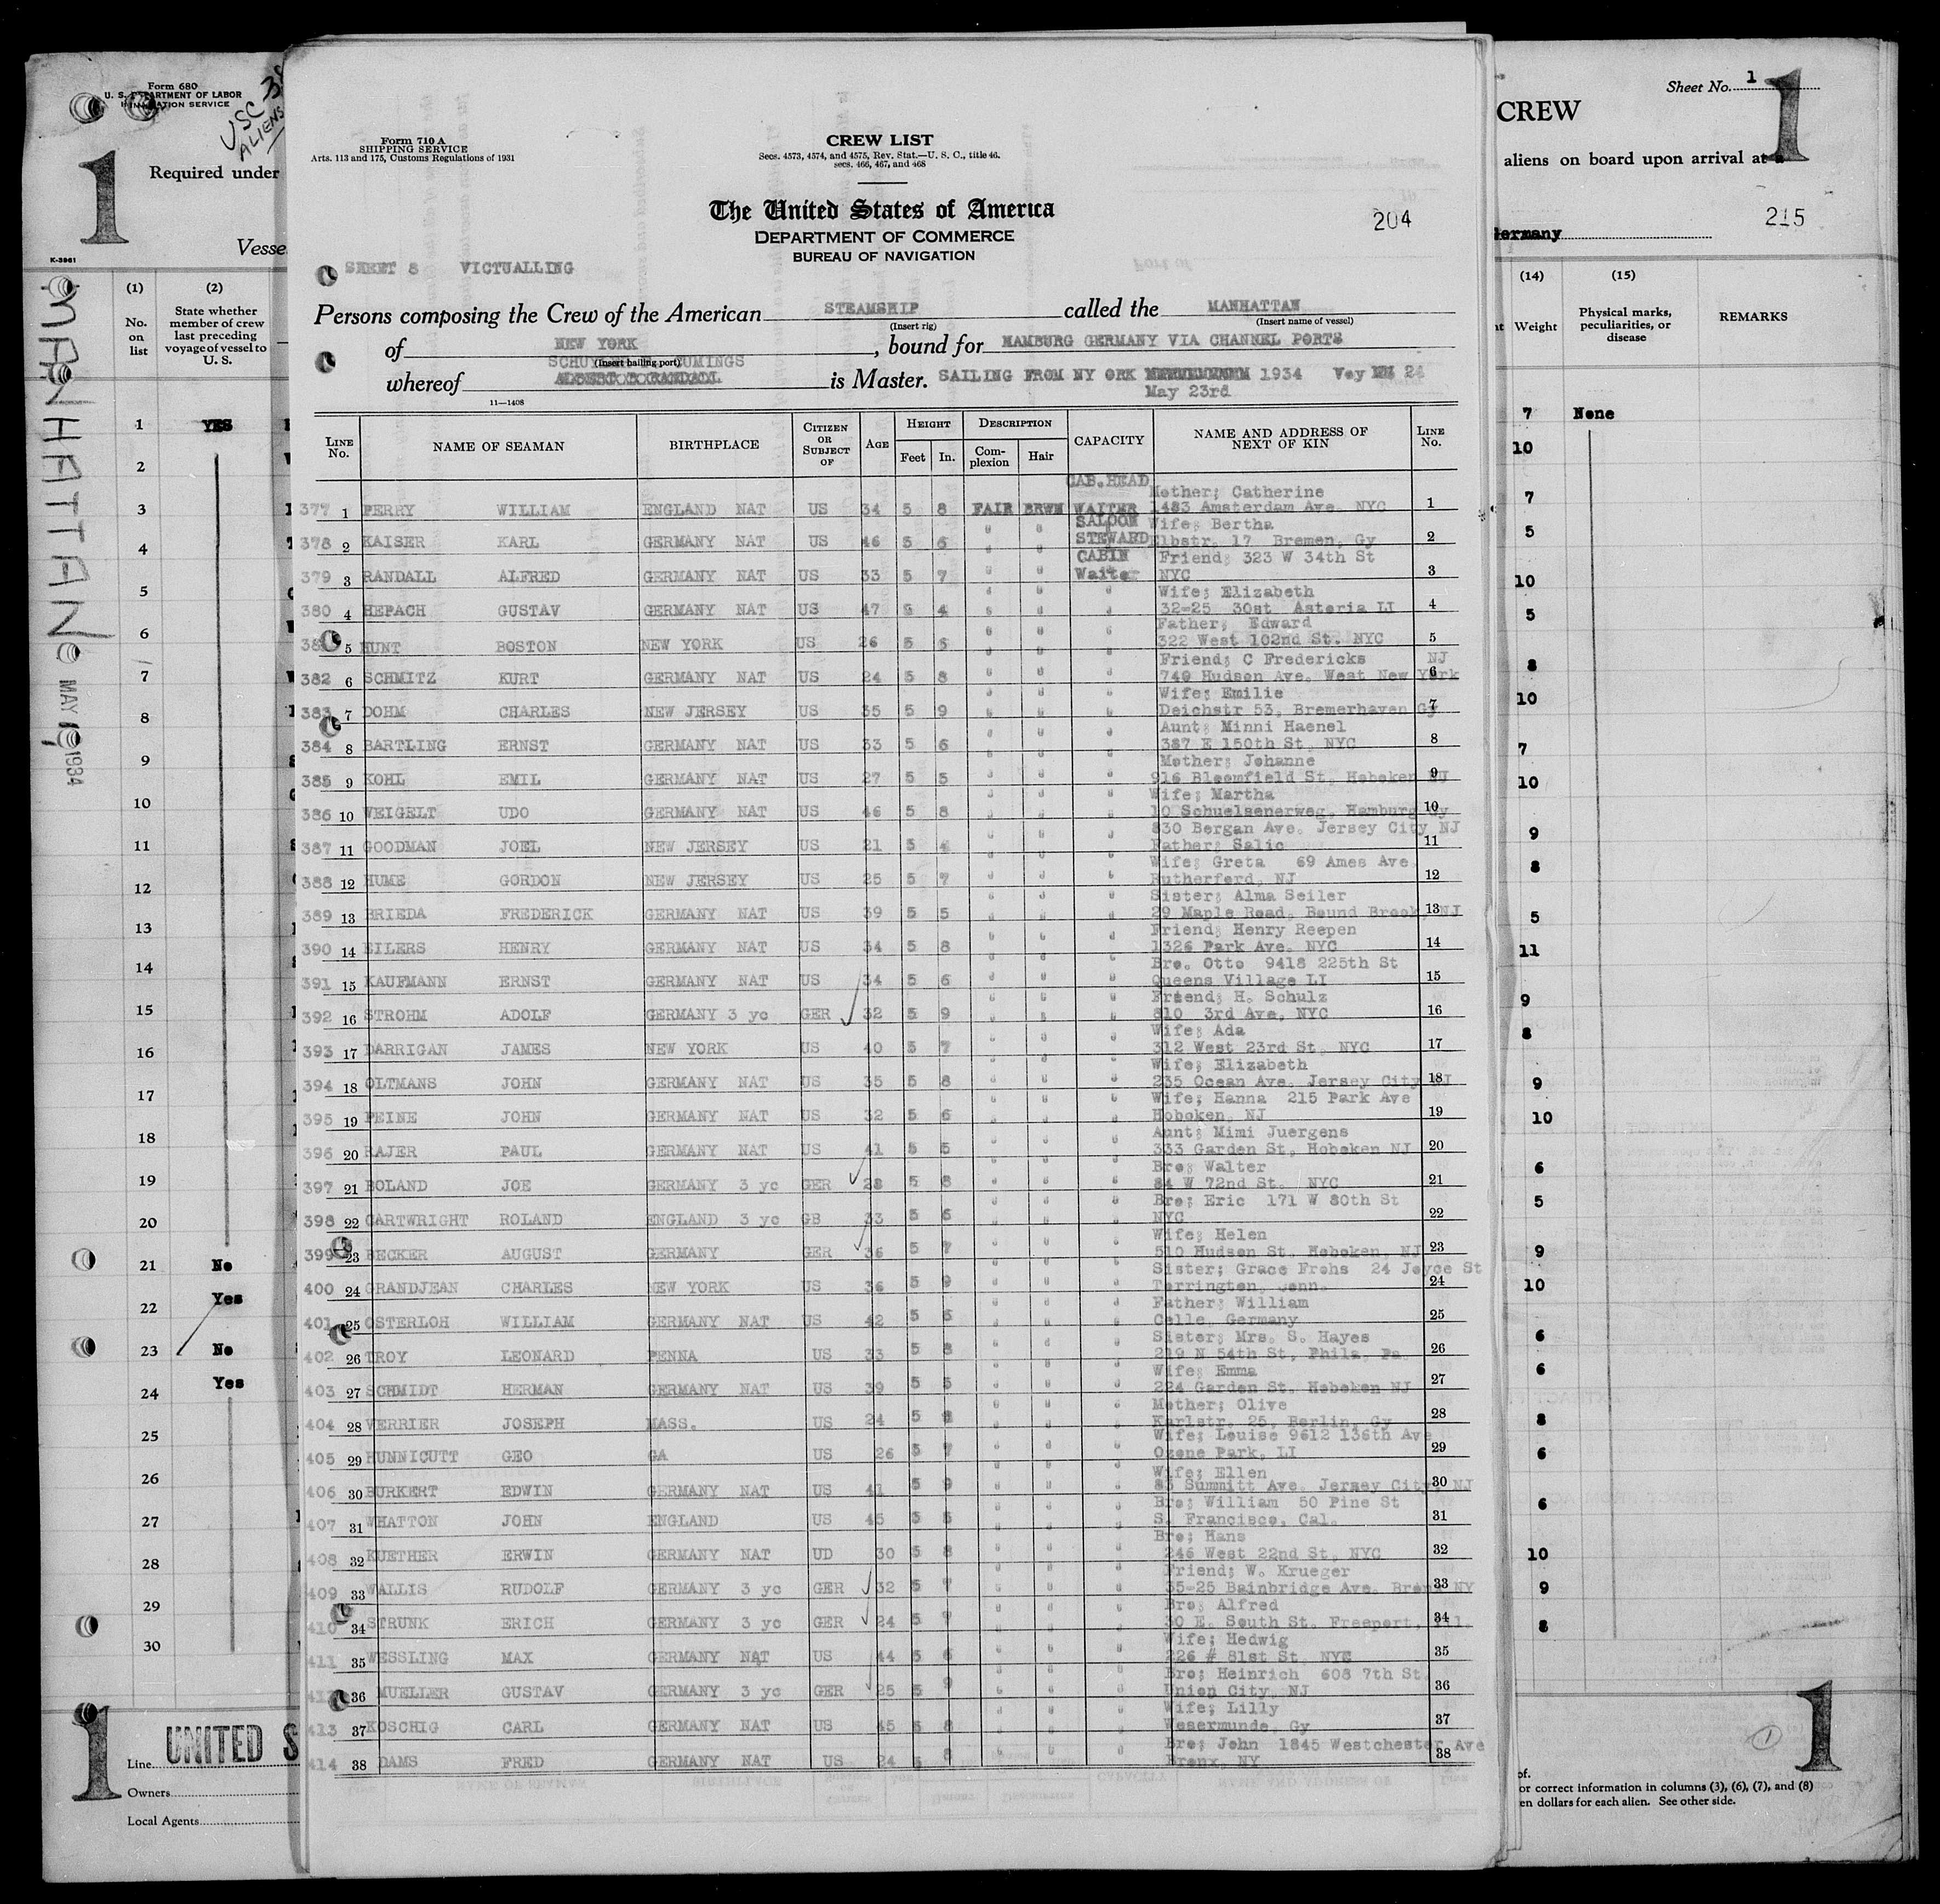 Form 680
U. S. DEPARTMENT OF LABOR
IMMIGRATION SERVICE
USC 38
ALIENS
1
Required under
Vesse
K-3961
MANHATTAN
MAY 1934
(1) (2)
No. on list
State whether member of crew last preceding voyage of vessel to U. S.
1 YES
2
3
4
5
6
7
8
9
10
11
12
13
14
15
16
17
18
19
20
21 No
22 Yes
23 No
24 Yes
25
26
27
28
29
30
1
UNITED S
Line
Owners
Local Agents
Form 710 A
SHIPPING SERVICE
Arts. 113 and 175, Customs Regulations of 1931
CREW LIST
Secs. 4573, 4574, and 4575, Rev. Stat.—U. S. C., title 46.
secs. 466, 467, and 468
The United States of America
DEPARTMENT OF COMMERCE
BUREAU OF NAVIGATION
204
SHEET 8 VICTUALLING
Persons composing the Crew of the American STEAMSHIP called the MANHATTAN
(Insert rig) (Insert name of vessel)
of NEW YORK, bound for HAMBURG GERMANY VIA CHANNEL PORTS
(Insert hailing port)
SCHUY CUMINGS
whereof is Master. SAILING FROM NY ORK 1934 Voy 24
May 23rd
11—1408
LINE No. NAME OF SEAMAN BIRTHPLACE CITIZEN OR SUBJECT OF AGE HEIGHT Feet In. DESCRIPTION Complexion Hair CAPACITY NAME AND ADDRESS OF NEXT OF KIN LINE No.
CAB.HEAD Mother; Catherine
377 1 PERRY WILLIAM ENGLAND NAT US 34 5 8 FAIR BRWN WAITER 1483 Amsterdam Ave. NYC 1
SALOON Wife; Bertha
378 2 KAISER KARL GERMANY NAT US 46 5 6 " " STEWARD Elbstr. 17 Bremen, Gy 2
CABIN Friend; 323 W 34th St
379 3 RANDALL ALFRED GERMANY NAT US 33 5 7 " " Waiter NYC 3
Wife; Elizabeth
380 4 HEPACH GUSTAV GERMANY NAT US 47 5 4 " " " 32-25 30st Astoria LI 4
Father; Edward
38 5 HUNT BOSTON NEW YORK US 26 5 6 " " " 322 West 102nd St. NYC 5
Friend; C Fredericks NJ
382 6 SCHMITZ KURT GERMANY NAT US 24 5 8 " " " 749 Hudson Ave. West New York 6
Wife; Emilie
383 7 DOHM CHARLES NEW JERSEY US 35 5 9 " " " Deichstr 53, Bremerhaven Gy 7
Aunt; Minni Haenel
384 8 BARTLING ERNST GERMANY NAT US 33 5 6 " " " 387 E 150th St, NYC 8
Mother; Johanne
385 9 KOHL EMIL GERMANY NAT US 27 5 5 " " " 916 Bloomfield St, Hoboken NJ 9
Wife; Martha
386 10 WEIGELT UDO GERMANY NAT US 46 5 8 " " " 10 Schuelsenerweg, Hamburg Gy 10
830 Bergan Ave. Jersey City NJ
387 11 GOODMAN JOEL NEW JERSEY US 21 5 4 " " " Father; Salic 11
Wife; Greta 69 Ames Ave
388 12 HUME GORDON NEW JERSEY US 25 5 7 " " " Rutherford, NJ 12
Sister; Alma Seiler
389 13 BRIEDA FREDERICK GERMANY NAT US 39 5 5 " " " 29 Maple Road, Bound Brook, NJ 13
Friend; Henry Reepen
390 14 EILERS HENRY GERMANY NAT US 34 5 8 " " " 1326 Park Ave. NYC 14
Bro. Otto 9418 225th St
391 15 KAUFMANN ERNST GERMANY NAT US 34 5 6 " " " Queens Village LI 15
Friend; H. Schulz
392 16 STROHM ADOLF GERMANY 3 yc GER 32 5 9 " " " 810 3rd Ave, NYC 16
Wife; Ada
393 17 DARRIGAN JAMES NEW YORK US 40 5 7 " " " 312 West 23rd St, NYC 17
Wife; Elizabeth
394 18 OLTMANS JOHN GERMANY NAT US 35 5 8 " " " 235 Ocean Ave. Jersey City NJ 18
Wife; Hanna 215 Park Ave
395 19 PEINE JOHN GERMANY NAT US 32 5 6 " " " Hoboken, NJ 19
Aunt; Mimi Juergens
396 20 RAJER PAUL GERMANY NAT US 41 5 5 " " " 333 Garden St, Hoboken NJ 20
Bro; Walter
397 21 BOLAND JOE GERMANY 3 yc GER 28 5 8 " " " 84 W 72nd St. NYC 21
Bro; Eric 171 W 80th St
398 22 CARTWRIGHT ROLAND ENGLAND 3 yc GB 33 5 6 " " " NYC 22
Wife; Helen
399 23 BECKER AUGUST GERMANY GER 36 5 7 " " " 510 Hudson St, Hoboken, NJ 23
Sister; Grace Frohs 24 Joyce St
400 24 GRANDJEAN CHARLES NEW YORK US 36 5 9 " " " Torrington, Conn. 24
Father; William
401 25 OSTERLOH WILLIAM GERMANY NAT US 42 5 6 " " " Celle, Germany 25
Sister; Mrs. S. Hayes
402 26 TROY LEONARD PENNA US 33 5 8 " " " 219 N 54th St, Phila, Pa 26
Wife; Emma
403 27 SCHMIDT HERMAN GERMANY NAT US 39 5 5 " " " 224 Garden St. Hoboken NJ 27
Mother; Olive
404 28 VERRIER JOSEPH MASS. US 24 5 " " " Karlstr. 25, Berlin, Gy 28
Wife; Louise 9612 136th Ave
405 29 HUNNICUTT GEO GA US 26 5 7 " " " Ozone Park, LI 29
Wife; Ellen
406 30 BURKERT EDWIN GERMANY NAT US 41 5 9 " " " 83 Summitt Ave. Jersey City, NJ 30
Bro; William 50 Pine St
407 31 WHATTON JOHN ENGLAND US 45 5 5 " " " S. Francisco, Cal. 31
Bro; Hans
408 32 KUETHER ERWIN GERMANY NAT UD 30 5 8 " " " 246 West 22nd St, NYC 32
Friend; W. Krueger
409 33 WALLIS RUDOLF GERMANY 3 yc GER 32 5 7 " " " 35-25 Bainbridge Ave. Bronx NY 33
Bro; Alfred
410 34 STRUNK ERICH GERMANY 3 yc GER 24 5 " " " 30 E. South St. Freeport, Ill. 34
Wife; Hedwig
411 35 WESSLING MAX GERMANY NAT US 44 5 6 " " " 226 # 81st St, NYC 35
Bro; Heinrich 608 7th St
412 36 MUELLER GUSTAV GERMANY 3 yc GER 25 5 9 " " " Union City, NJ 36
Wife; Lilly
413 37 KOSCHIG CARL GERMANY NAT US 45 5 8 " " " Wesermunde, Gy 37
Bro; John 1845 Westchester Ave
414 38 DAMS FRED GERMANY NAT US 24 5 8 " " " Bronx, NY 38
Sheet No. 1
1
CREW
aliens on board upon arrival at a
215
Germany
(14) (15)
Weight
Physical marks, peculiarities, or disease
REMARKS
7 None
10
7
5
10
5
8
10
7
10
9
8
5
11
9
8
9
10
6
5
9
10
6
6
8
6
6
10
9
8
1
1
of.
or correct information in columns (3), (6), (7), and (8)
en dollars for each alien. See other side.